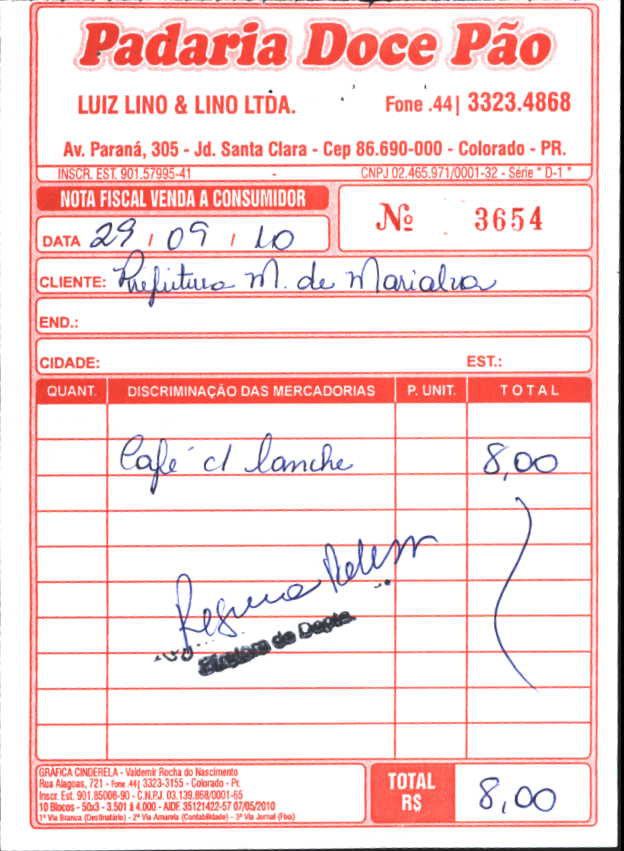 Padaria Doce Pão
LUIZ LINO & LINO LTDA. Fone .44| 3323.4868
Av. Paraná, 305 - Jd. Santa Clara - Cep 86.690-000 - Colorado - PR.
INSCR. EST. 901.57995-41 - CNPJ 02.465.971/0001-32 - Série " D-1 "
NOTA FISCAL VENDA A CONSUMIDOR
Nº 3654
DATA 29 / 09 / 10
CLIENTE: Prefeitura M. de Marialva
END.:
CIDADE: EST.:
QUANT. DISCRIMINAÇÃO DAS MERCADORIAS P. UNIT. TOTAL
Café c/ lanche 8,00
Regina
Diretora de Depto.
GRÁFICA CINDERELA - Valdemir Rocha do Nascimento
Rua Alagoas, 721 - Fone .44| 3323-3155 - Colorado - Pr.
Inscr. Est. 901.85008-90 - C.N.P.J. 03.139.868/0001-65
10 Blocos - 50x3 - 3.501 à 4.000 - AIDF. 35121422-57 07/05/2010
1ª Via Branca (Destinatário) - 2ª Via Amarela (Contabilidade) - 3ª Via Jornal (Fixo)
TOTAL R$ 8,00